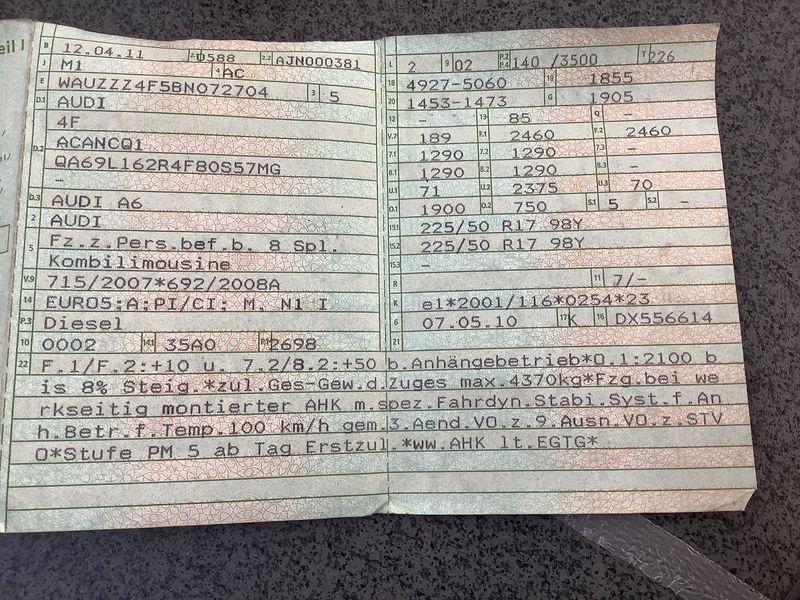 eil I
B 12.04.11 2.1 0588 2.2 AJN000381
J M1 4 AC
E WAUZZZ4F5BN072704 3 5
D.1 AUDI
4F
D.2 ACANCQ1
QA69L162R4F80S57MG
–
D.3 AUDI A6
2 AUDI
5 Fz.z.Pers.bef.b. 8 Spl.
Kombilimousine
V.9 715/2007*692/2008A
14 EURO5;A;PI/CI; M, N1 I
P.3 Diesel
10 0002 14.1 35A0 P.1 2698
L 2 9 02 P.2 P.4 140 /3500 T 226
18 4927-5060 19 1855
20 1453-1473 G 1905
12 – 13 85 Q –
V.7 189 F.1 2460 F.2 2460
7.1 1290 7.2 1290 7.3 –
8.1 1290 8.2 1290 8.3 –
U.1 71 U.2 2375 U.3 70
O.1 1900 O.2 750 S.1 5 S.2 –
15.1 225/50 R17 98Y
15.2 225/50 R17 98Y
15.3 –
R 11 7/-
K e1*2001/116*0254*23
6 07.05.10 17 K 16 DX556614
21
22 F.1/F.2:+10 u. 7.2/8.2:+50 b.Anhängebetrieb*O.1:2100 b
is 8% Steig.*zul.Ges-Gew.d.Zuges max.4370kg*Fzg.bei we
rkseitig montierter AHK m.spez.Fahrdyn.Stabi.Syst.f.An
h.Betr.f.Temp.100 km/h gem.3.Aend.VO.z.9.Ausn.VO.z.STV
O*Stufe PM 5 ab Tag Erstzul.*ww.AHK lt.EGTG*